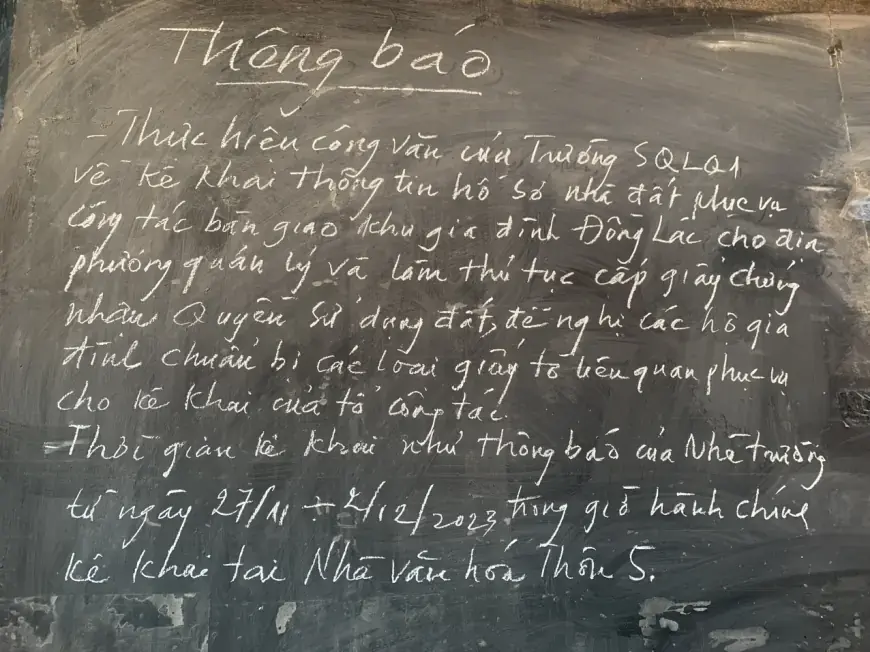 Thông báo
- Thực hiện công văn của Trường SQLQ1
về kê khai thông tin hồ sơ nhà đất phục vụ
công tác bàn giao khu gia đình Đồng Lác cho địa
phương quản lý và làm thủ tục cấp giấy chứng
nhận Quyền sử dụng đất, đề nghị các hộ gia
đình chuẩn bị các loại giấy tờ liên quan phục vụ
cho kê khai của tổ công tác.
- Thời gian kê khai như thông báo của Nhà trường
từ ngày 27/11 ÷ 2/12/2023, trong giờ hành chính
kê khai tại Nhà văn hóa Thôn 5.